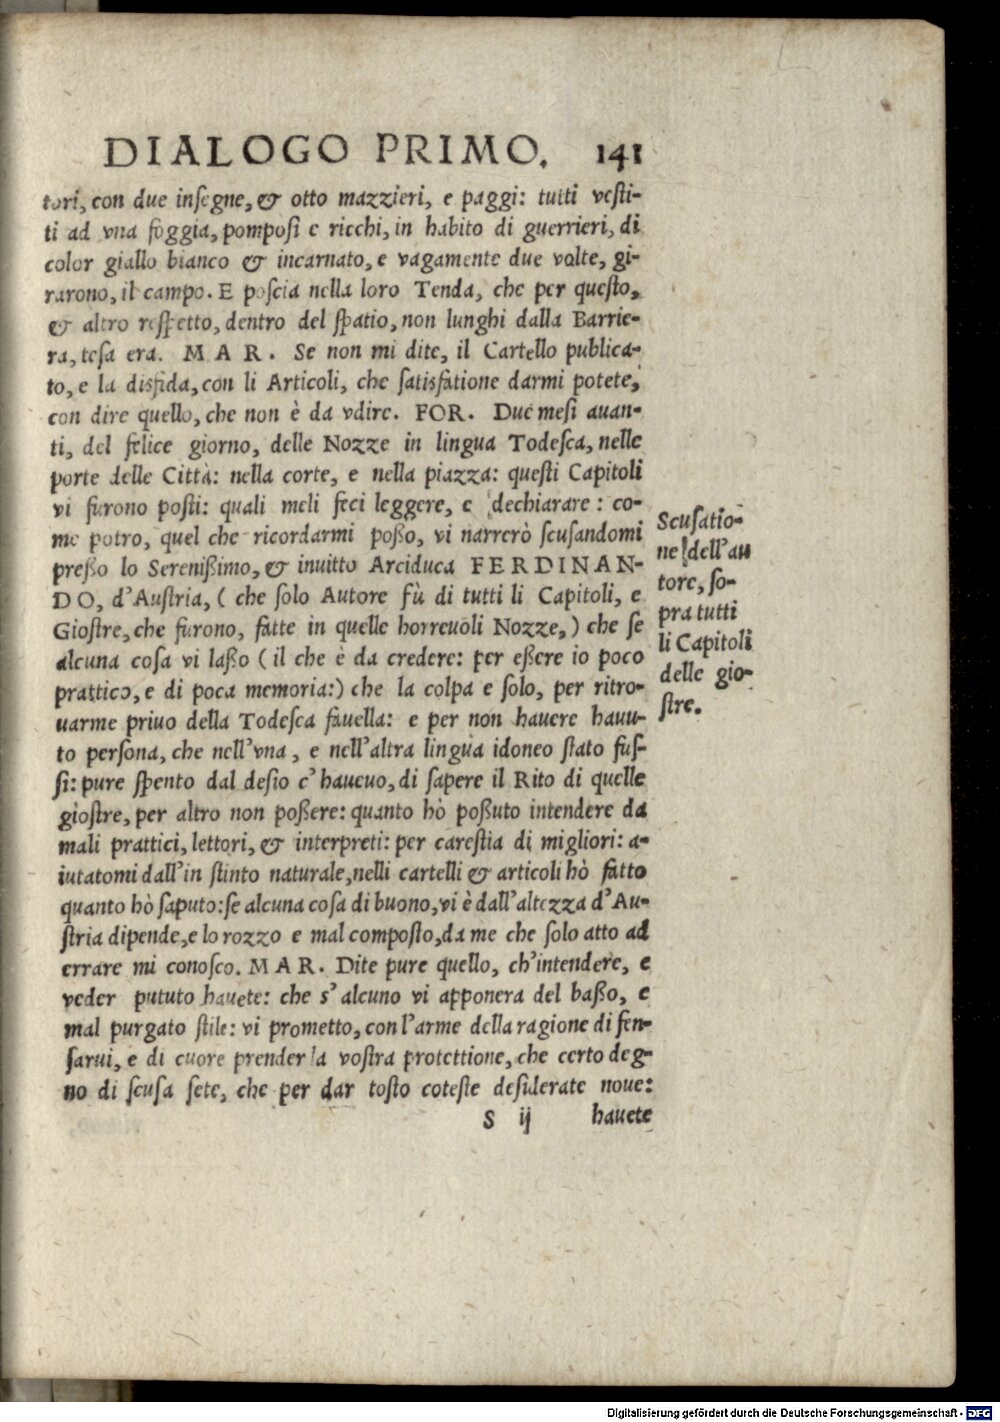 DIALOGO PRIMO. 141
tori, con due inſegne, & otto mazzieri, e paggi: tutti veſti-
ti ad vna foggia, pompoſi e ricchi, in habito di guerrieri, di
color giallo bianco & incarnato, e vagamente due volte, gi-
rarono, il campo. E poſcia nella loro Tenda, che per queſto,
& altro reſpetto, dentro del ſpatio, non lunghi dalla Barrie-
ra, teſa era. MAR. Se non mi dite, il Cartello publica-
to, e la disfida, con li Articoli, che ſatisfatione darmi potete,
con dire quello, che non è da vdire. FOR. Due meſi auan-
ti, del felice giorno, delle Nozze in lingua Todeſca, nelle
porte delle Città: nella corte, e nella piazza: queſti Capitoli
vi furono poſti: quali meli feci leggere, e dechiarare: co-
me potro, quel che ricordarmi poßo, vi narrerò ſcuſandomi
preßo lo Sereniſsimo, & inuitto Arciduca FERDINAN-
DO, d'Auſtria, (che ſolo Autore fù di tutti li Capitoli, e
Gioſtre, che furono, fatte in quelle horreuoli Nozze,) che ſe
alcuna coſa vi laßo (il che è da credere: per eßere io poco
prattico, e di poca memoria:) che la colpa e ſolo, per ritro-
uarme priuo della Todeſca fauella: e per non hauere hauu-
to perſona, che nell'vna, e nell'altra lingua idoneo ſtato fuſ-
ſi: pure ſpento dal deſio c'haueuo, di ſapere il Rito di quelle
gioſtre, per altro non poßere: quanto hò poßuto intendere da
mali prattici, lettori, & interpreti: per careſtia di migliori: a-
iutatomi dall'in ſtinto naturale, nelli cartelli & articoli hò fatto
quanto hò saputo: ſe alcuna coſa di buono, vi è dall'altezza d'Au-
ſtria dipende, e lo rozzo e mal compoſto, da me che ſolo atto ad
errare mi conoſco. MAR. Dite pure quello, ch'intendere, e
veder pututo hauete: che s'alcuno vi apponera del baßo, e
mal purgato ſtile: vi prometto, con l'arme della ragione di fen-
ſarui, e di cuore prender la voſtra protettione, che certo deg-
no di ſcuſa ſete, che per dar toſto coteſte deſiderate noue:
S ij hauete
Scuſatio-
ne dell'au
tore, ſo-
pra tutti
li Capitoli
delle gio-
ſtre.
Digitalisierung gefördert durch die Deutsche Forschungsgemeinschaft - DFG